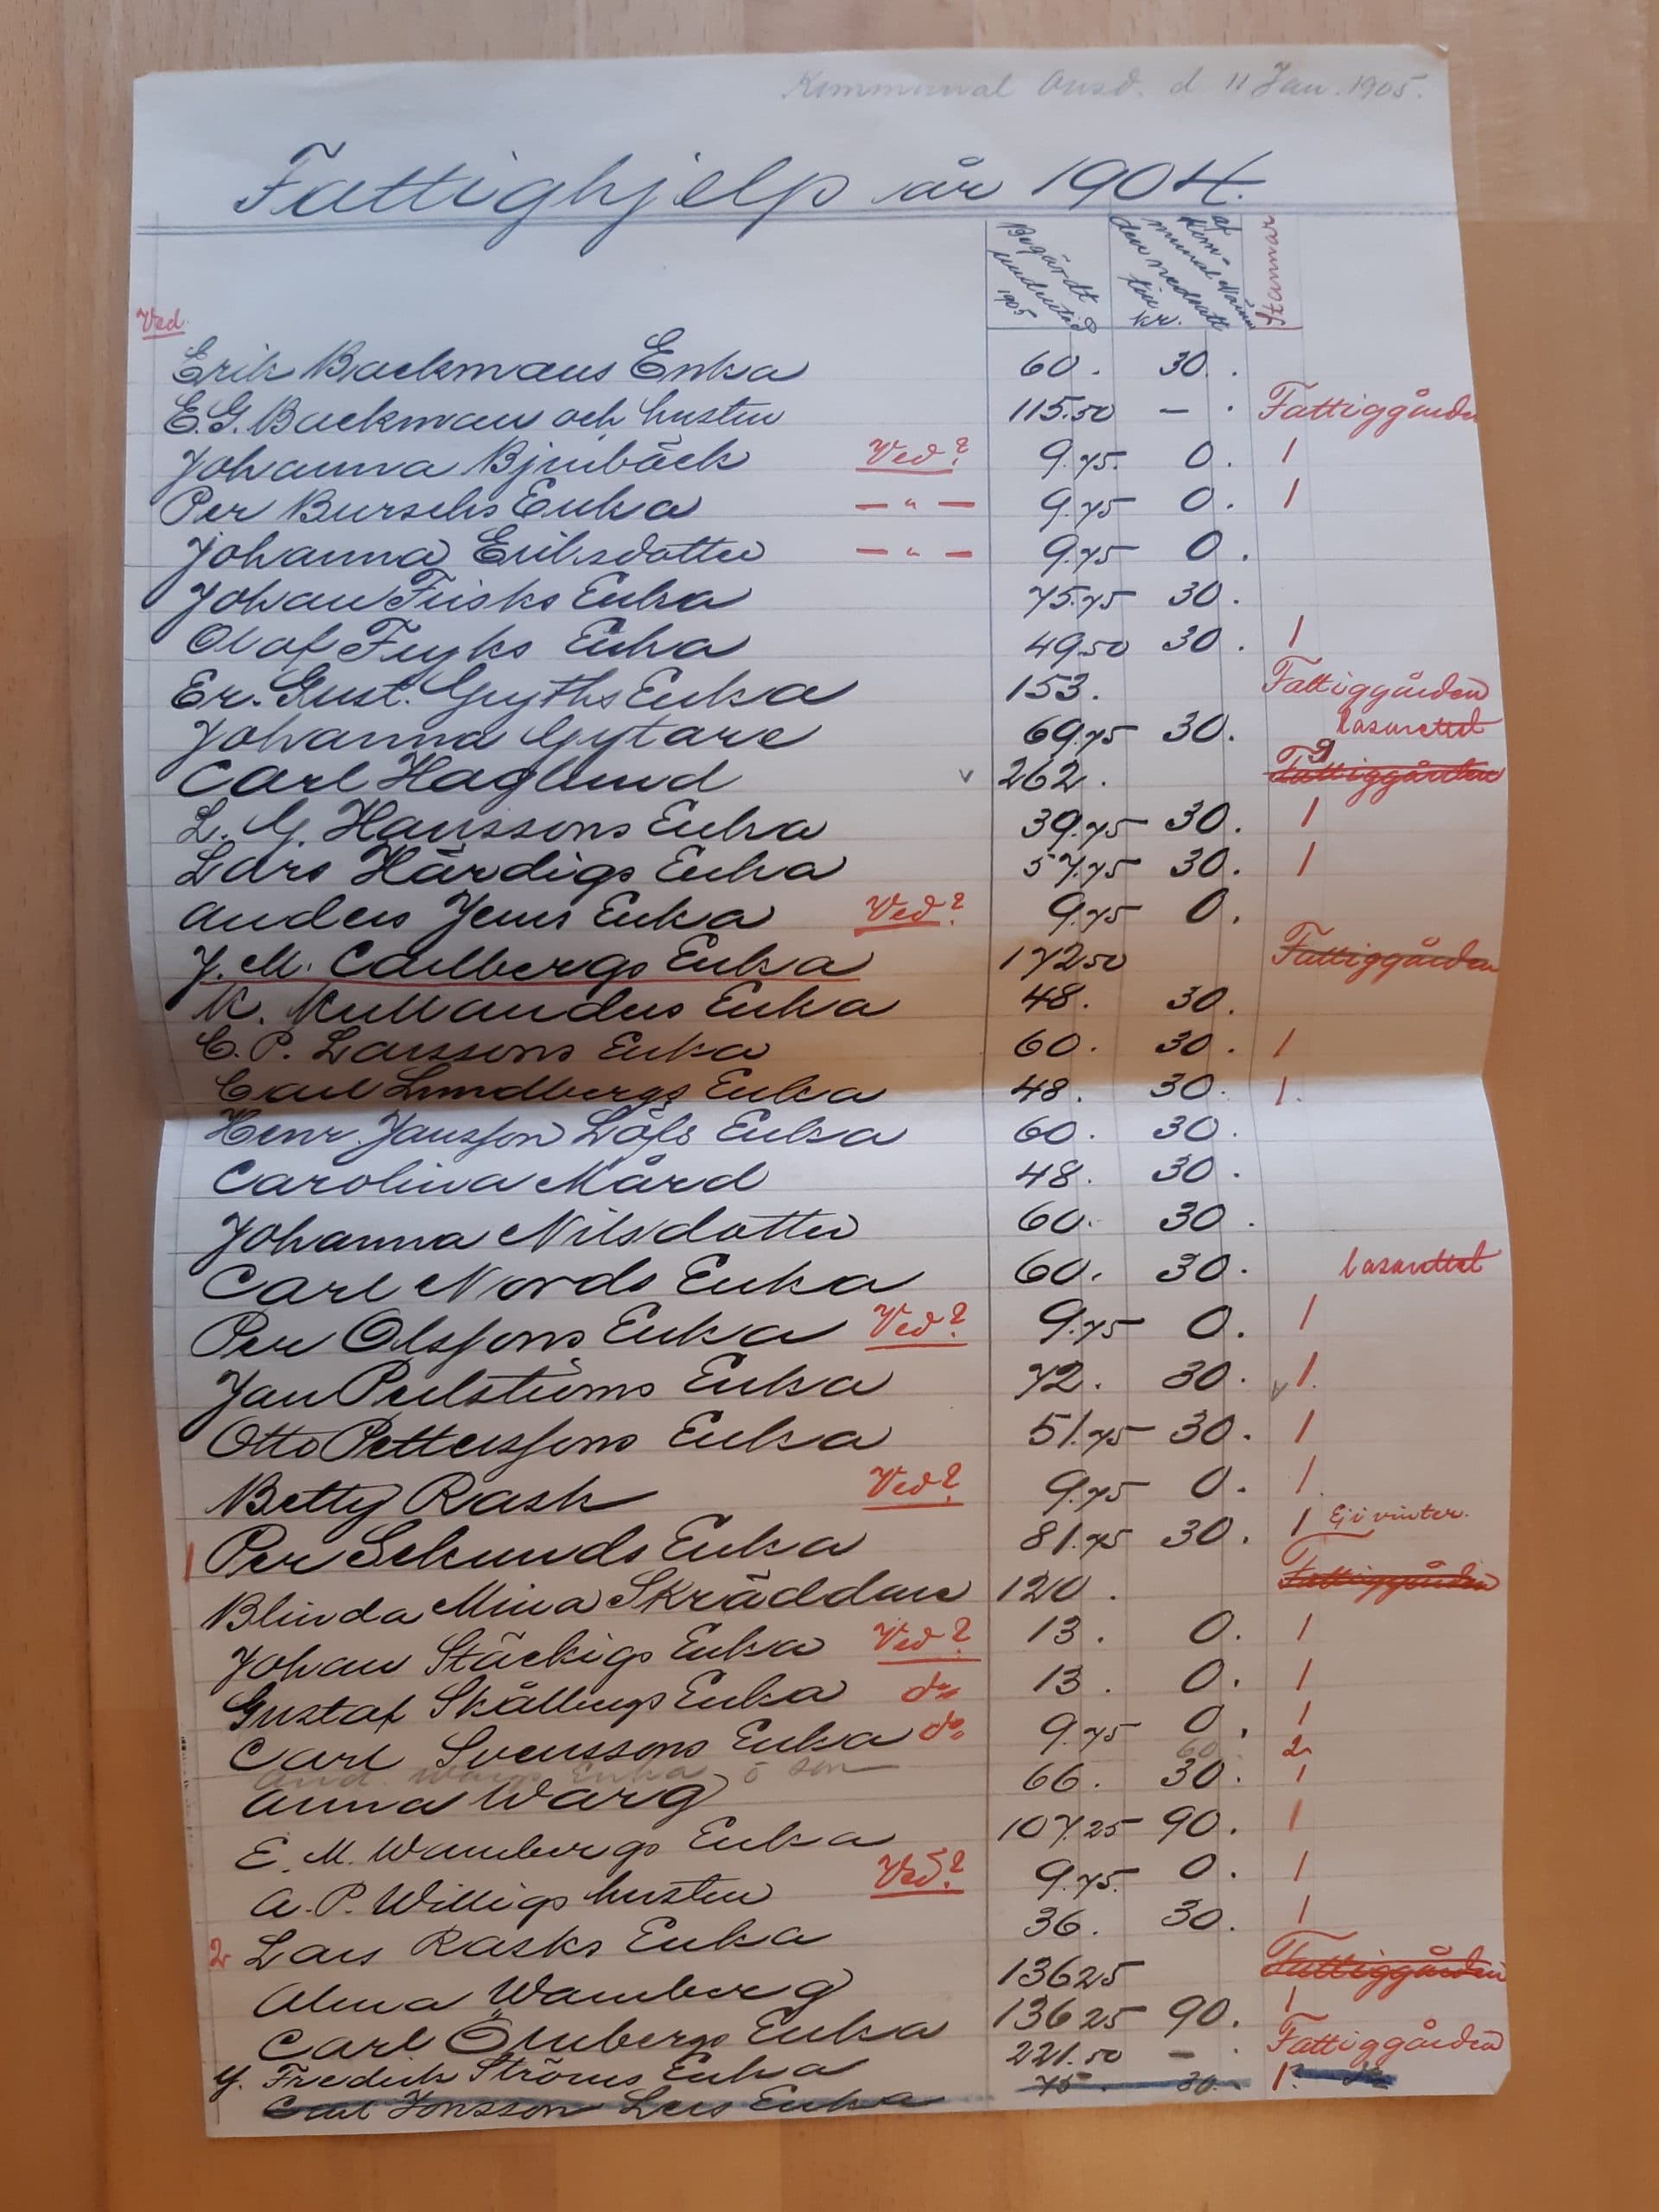 Kommunal d 11 Jan. 1905.
Fattighjelp år 1904.
Begärdt understöd 1905
af Kommunal Nämnden nedsatt till kr.
Stannar
Ved
Erik Backmans Enka 60. 30.
E.G. Backman och hustru 115.50 – Fattiggården
Johanna Björibäck Ved? 9.75. 0. 1
Per Burschs Enka — " — 9.75 0. 1
Johanna Eriksdotter — " — 9.75 0.
Johan Frisks Enka 75.75 30.
Olof Fryks Enka 49.50 30. 1
Er. Gust. Gryths Enka 153. Fattiggården
Johanna Gytare 69.75 30. lasarettet
Carl Haglund v 262. Fattiggården
L. G. Hanssons Enka 39.75 30. 1
Lars Härdigs Enka 57.75 30. 1
Anders Jerns Enka Ved? 9.75 0.
J. M. Carlbergs Enka 172 50 Fattiggården
K. Kullanders Enka 48. 30.
C. P. Larssons Enka 60. 30. 1
Carl Lundbergs Enka 48. 30. 1.
Henr. Jansson Löfs Enka 60. 30.
Carolina Mård 48. 30.
Johanna Nilsdotter 60. 30.
Carl Nords Enka 60. 30. lasarettet
Per Olssons Enka Ved? 9.75 0. 1
Jan Perlströms Enka 72. 30. v 1.
Otto Petterssons Enka 51.75 30. 1
Betty Rask Ved? 9.75 0. 1
1 Per Sekunds Enka 81.75 30. 1 Ej i vinter.
Blinda Mina Skräddare 120. Fattiggården
Johan Stäckigs Enka Ved? 13. 0. 1
Gustaf Skållbergs Enka do 13. 0. 1
Carl Svenssons Enka do 9.75 0. 1
And. Wargs Enka o son 60 2
Anna Warg 66. 30. 1
E. M. Wambergs Enka 107.25 90. 1
A. P. Willigs hustru Ved? 9.75. 0. 1
2 Lars Rasks Enka 36. 30. 1
Alma Wamberg 136 25 Fattiggården
Carl Örnbergs Enka 136 25 90. 1
Fredrik Ströms Enka 221.50 – Fattiggården
Carl Jonsson Enka 75. 30. 1.